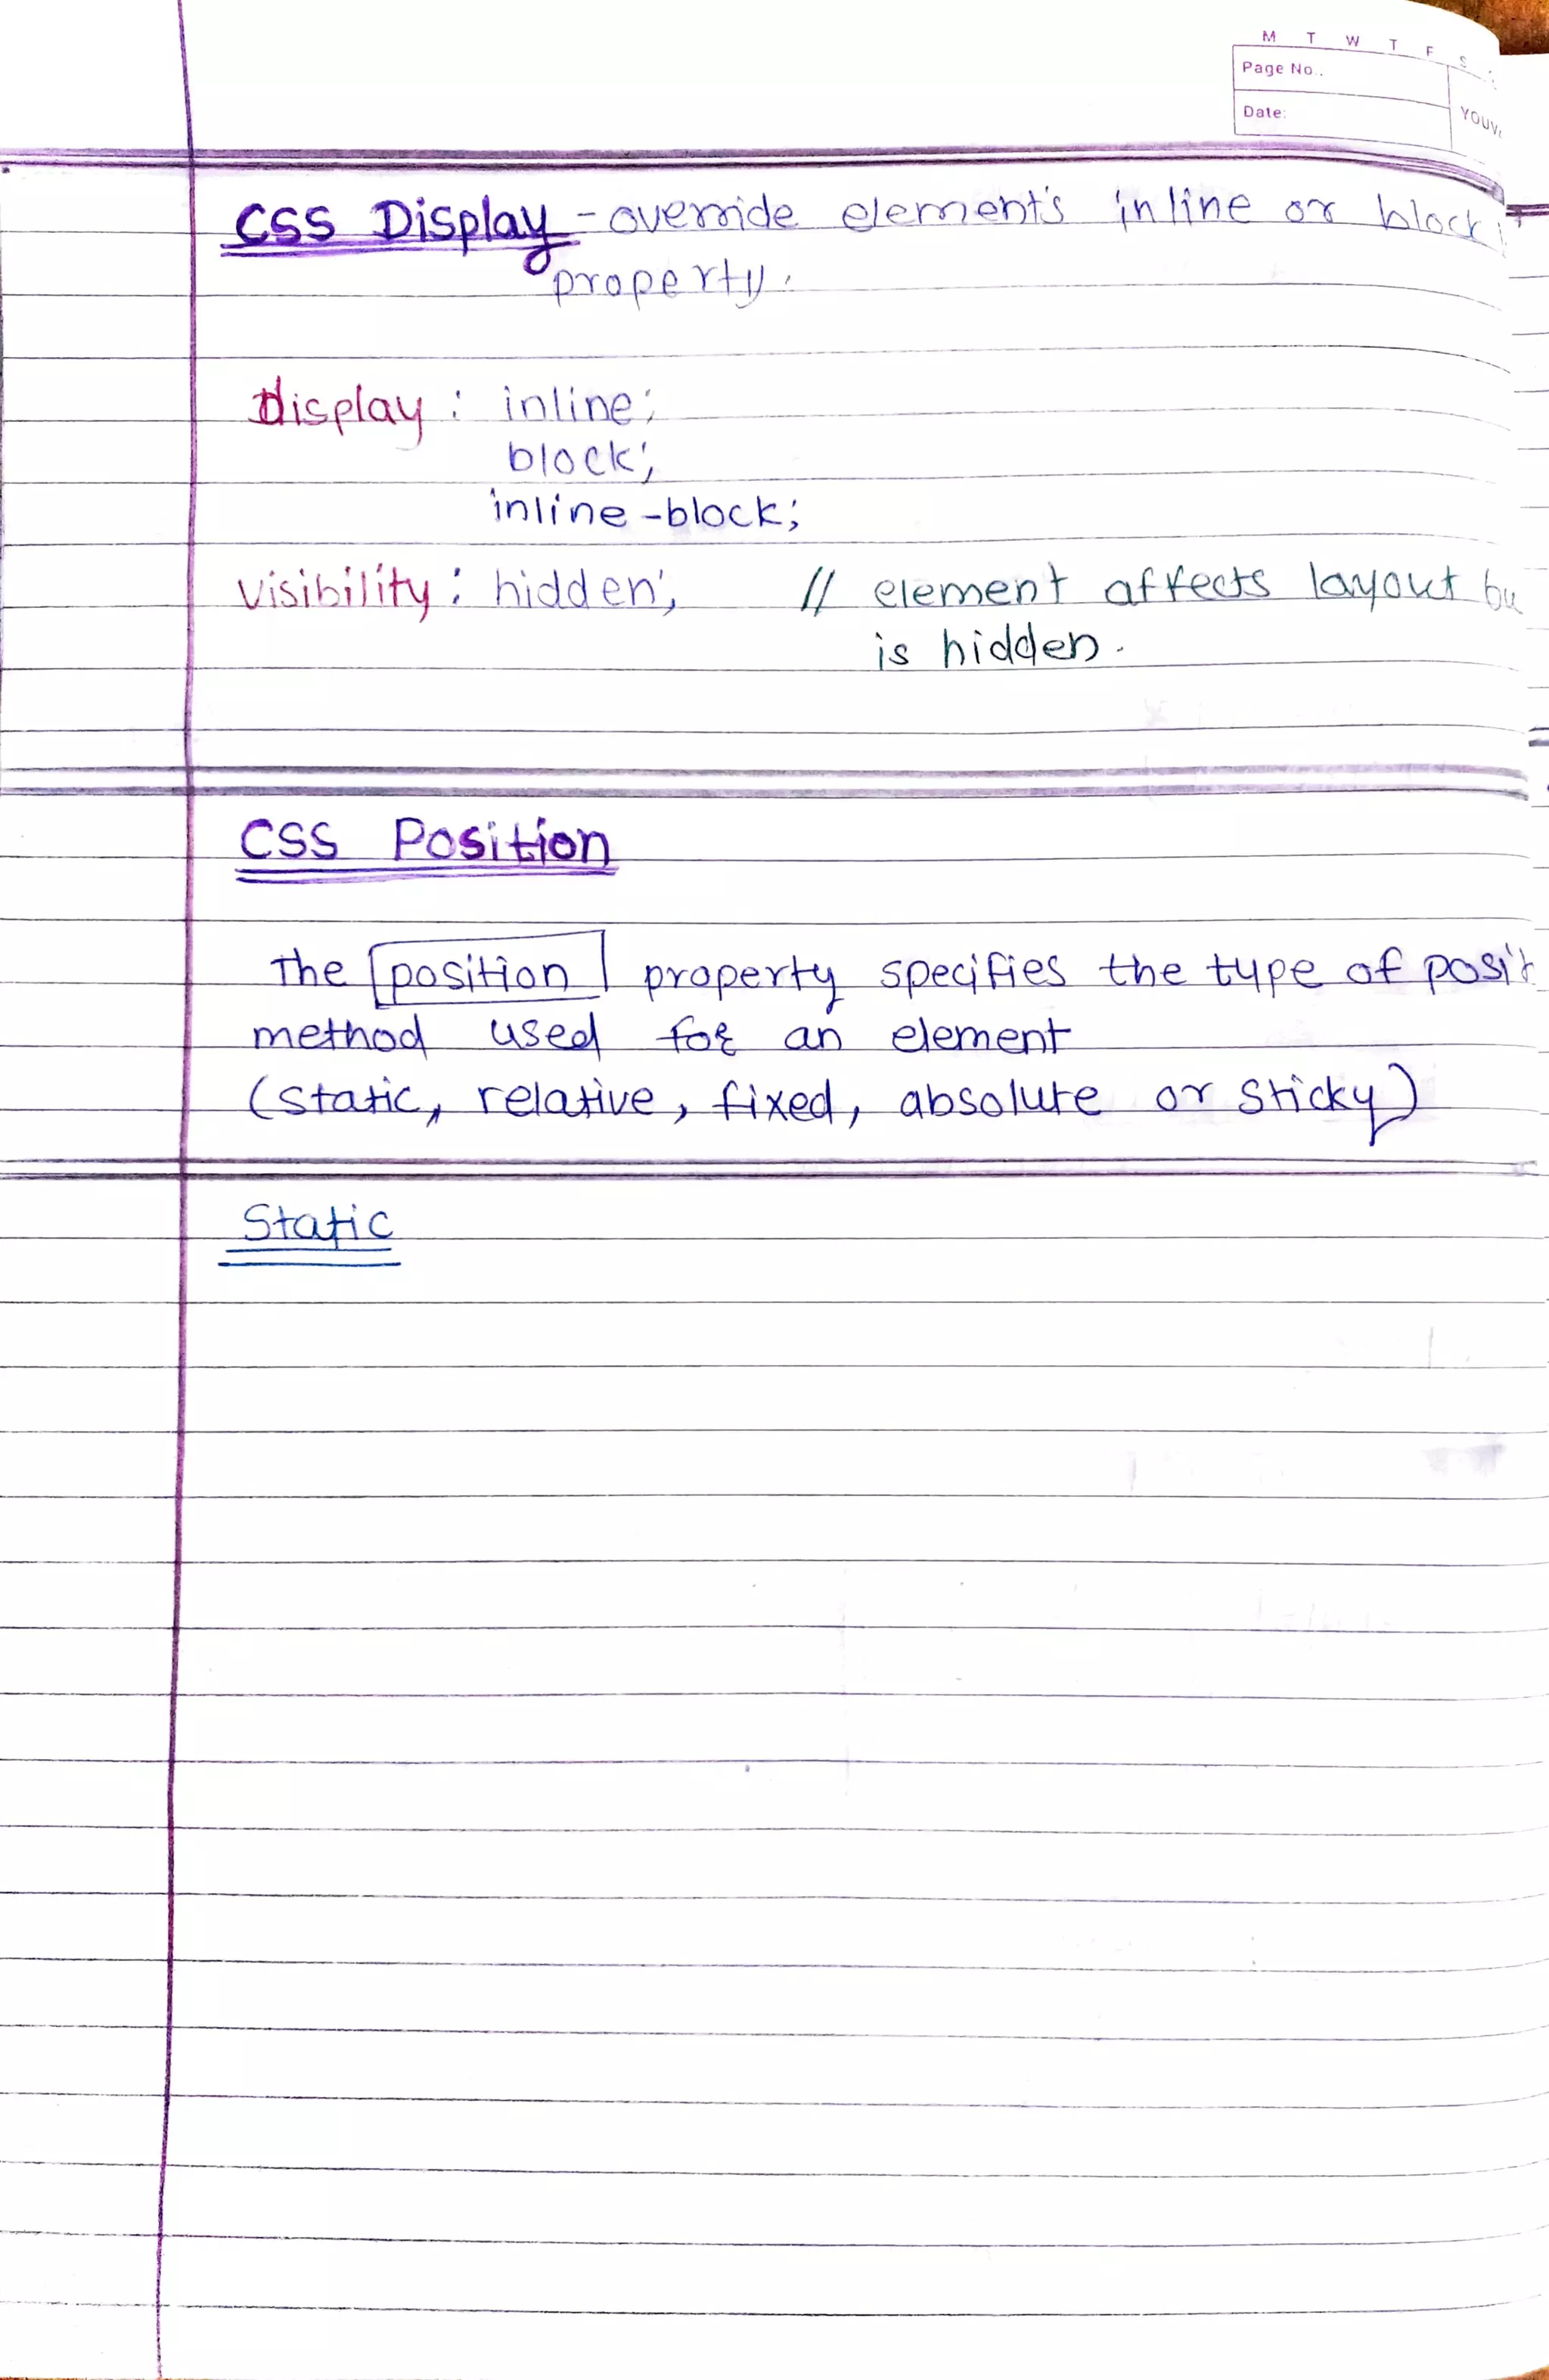 M T W T F S
Page No.:
Date:
YOUVA
CSS Display - override element's inline or block
property.
display : inline;
block;
inline-block;
visibility : hidden; // element affects layout bu
is hidden.
CSS Position
The position property specifies the type of posit
method used for an element
(static, relative, fixed, absolute or sticky)
Static